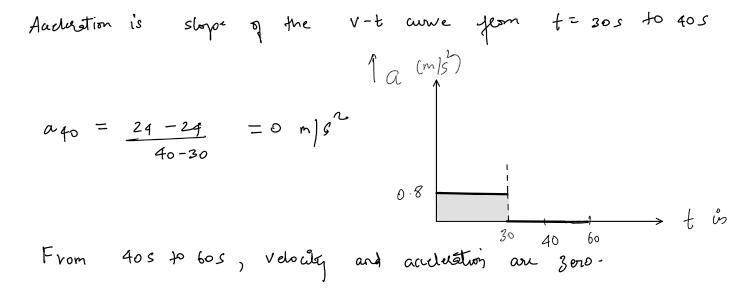 Acceleration is slope of the v-t curve from t = 30s to 40s
↑a (m/s²)
a40 = 24 - 24 / 40-30 = 0 m/s²
0.8
30 40 60 t is
From 40s to 60s, velocity and acceleration are zero.